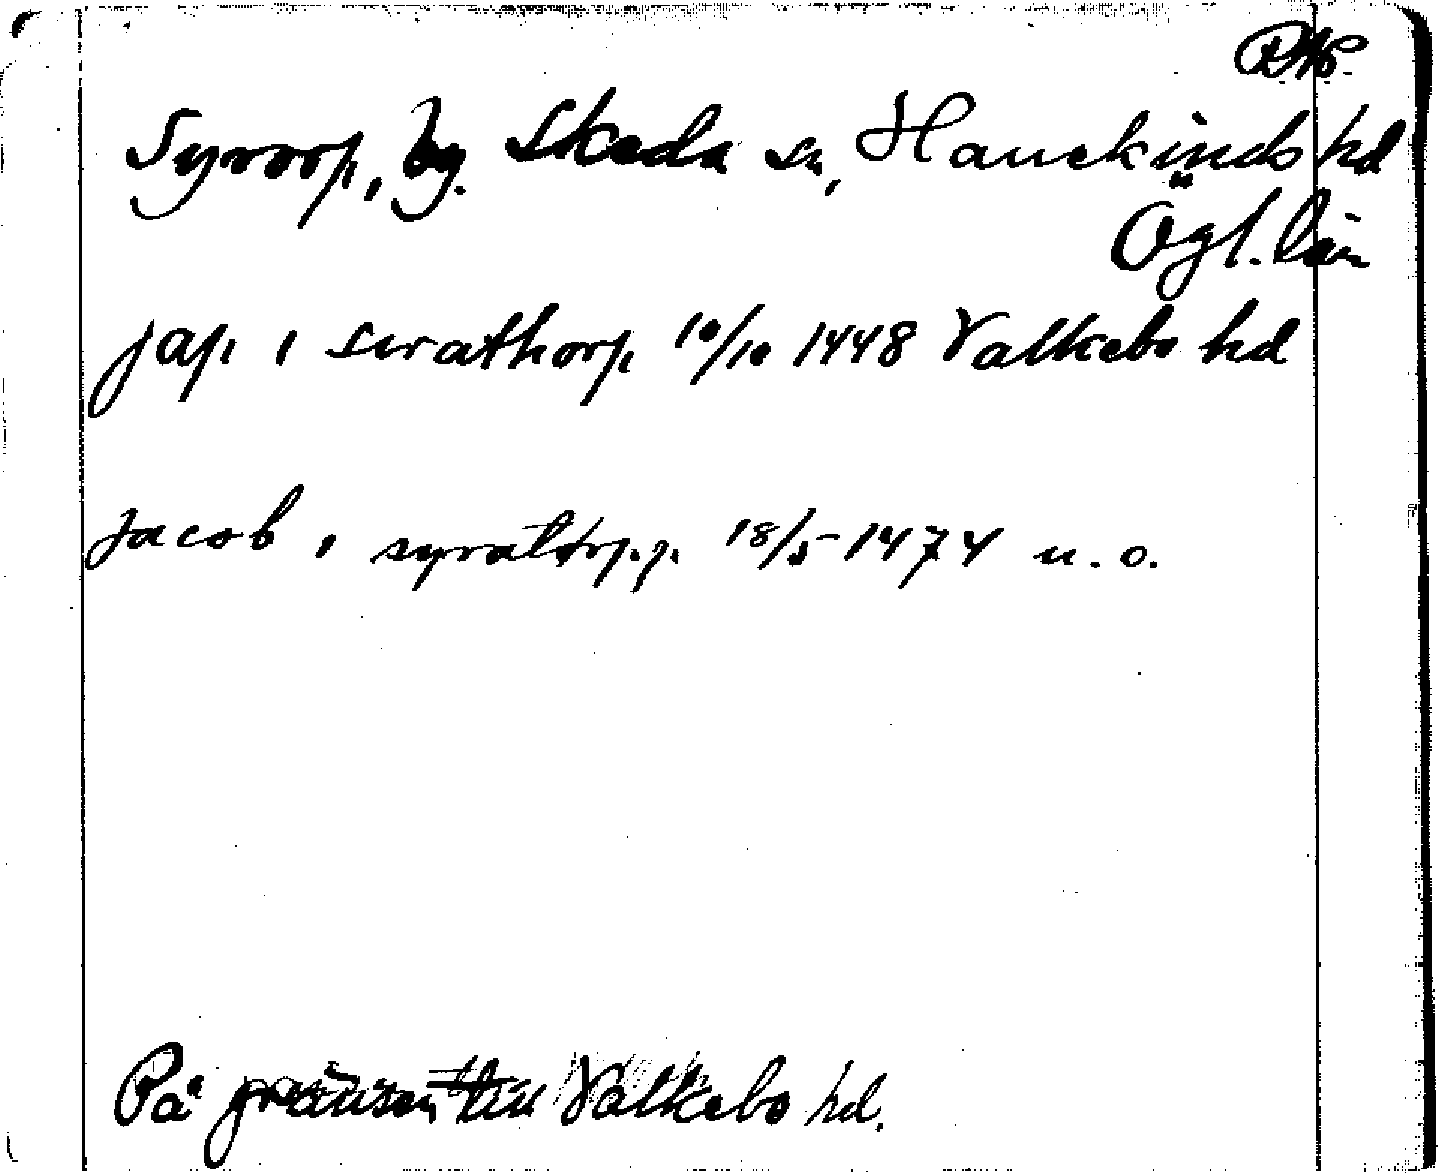 Syrorp, by. Skeda sn, Hanekinds hd
Ögl. län
jap i swrathorp 10/10 1448 Valkebo hd
Jacob i syratorp.p. 18/5 1474 u.o.
På gränsen till Valkebo hd.